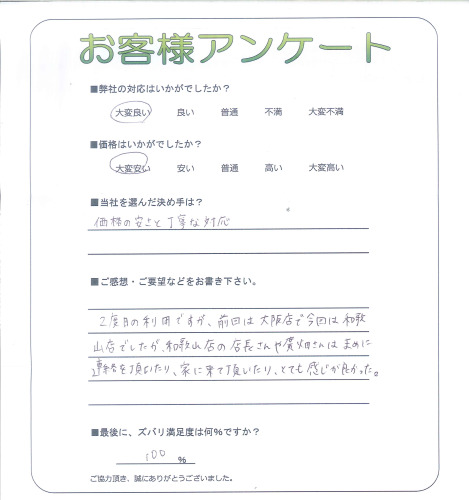 お客様アンケート
■弊社の対応はいかがでしたか？
大変良い 良い 普通 不満 大変不満
■価格はいかがでしたか？
大変安い 安い 普通 高い 大変高い
■当社を選んだ決め手は？
価格の安さと丁寧な対応
■ご感想・ご要望などをお書き下さい。
2度目の利用ですが、前回は大阪店で今回は和歌
山店でしたが、和歌山店の店長さんや貴畑さんはまめに
連絡を頂いたり、家に来て頂いたり、とても感じが良かった。
■最後に、ズバリ満足度は何%ですか？
100 %
ご協力頂き、誠にありがとうございました。